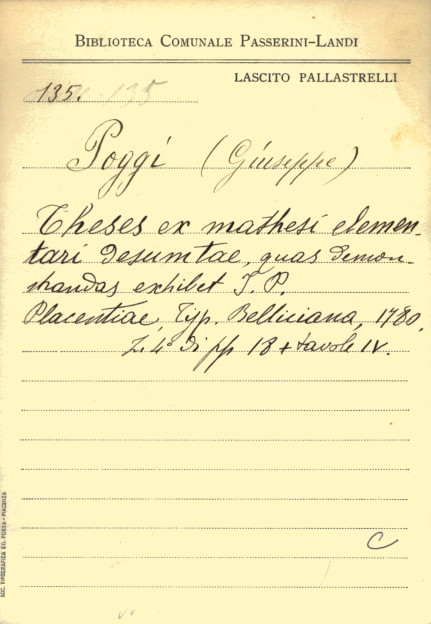 BIBLIOTECA COMUNALE PASSERINI-LANDI
LASCITO PALLASTRELLI
135.
Poggi (Giuseppe)
Theses ex mathesi elemen-
tari desumtae, quas demon-
strandas exhibet J. P.
Placentiae, Typ. Belliciana, 1780,
Z. 4° di pp 18 + tavole IV.
C
SOC. TIPOGRAFICA ED. PORTA - PIACENZA